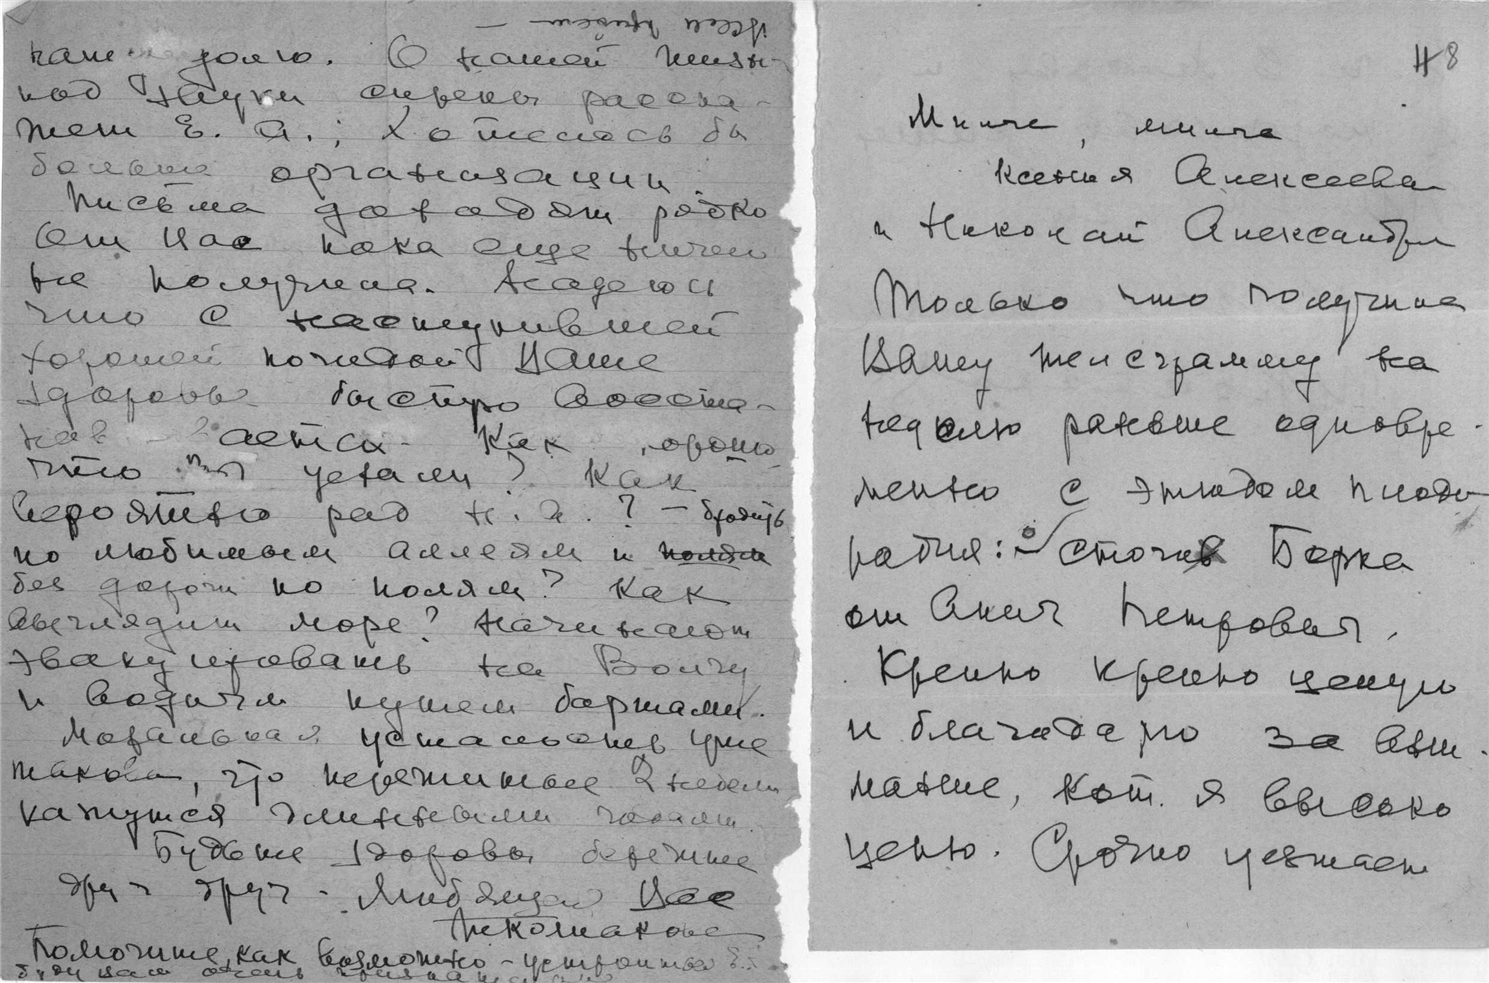 Всем привет —
нам долю. О нашей жизни
под звуки сирены расска-
жет Е. А.; Хотелось бы
больше организации.
Письма доходят редко
От Вас пока еще ничего
не получила. Надеюсь
что с наступившей
хорошей погодой Ваше
здоровье быстро восста-
Как хорошо
что уехали? Как
вероятно рад Н. А.? — бродить
по любимым аллеям и полям
без дороги по полям? Как
выглядит море? Начинают
эвакуировать на Волгу
и водным путем баржами.
Моральная усталость уже
такова, что пережитые 2 недели
кажутся длинными
Будьте здоровы берегите
друг друга. Любящая Вас
Помогите, как возможно — устроиться Е.
буду Вам очень
118
Милые, милые
Ксения Алексеевна
и Николай Александр
Только что получила
Вашу телеграмму на
неделю раньше одновре-
менно с этюдом
Крепко крепко целую
и благодарю за вни-
мание, кот. я высоко
ценю. Срочно уезжает